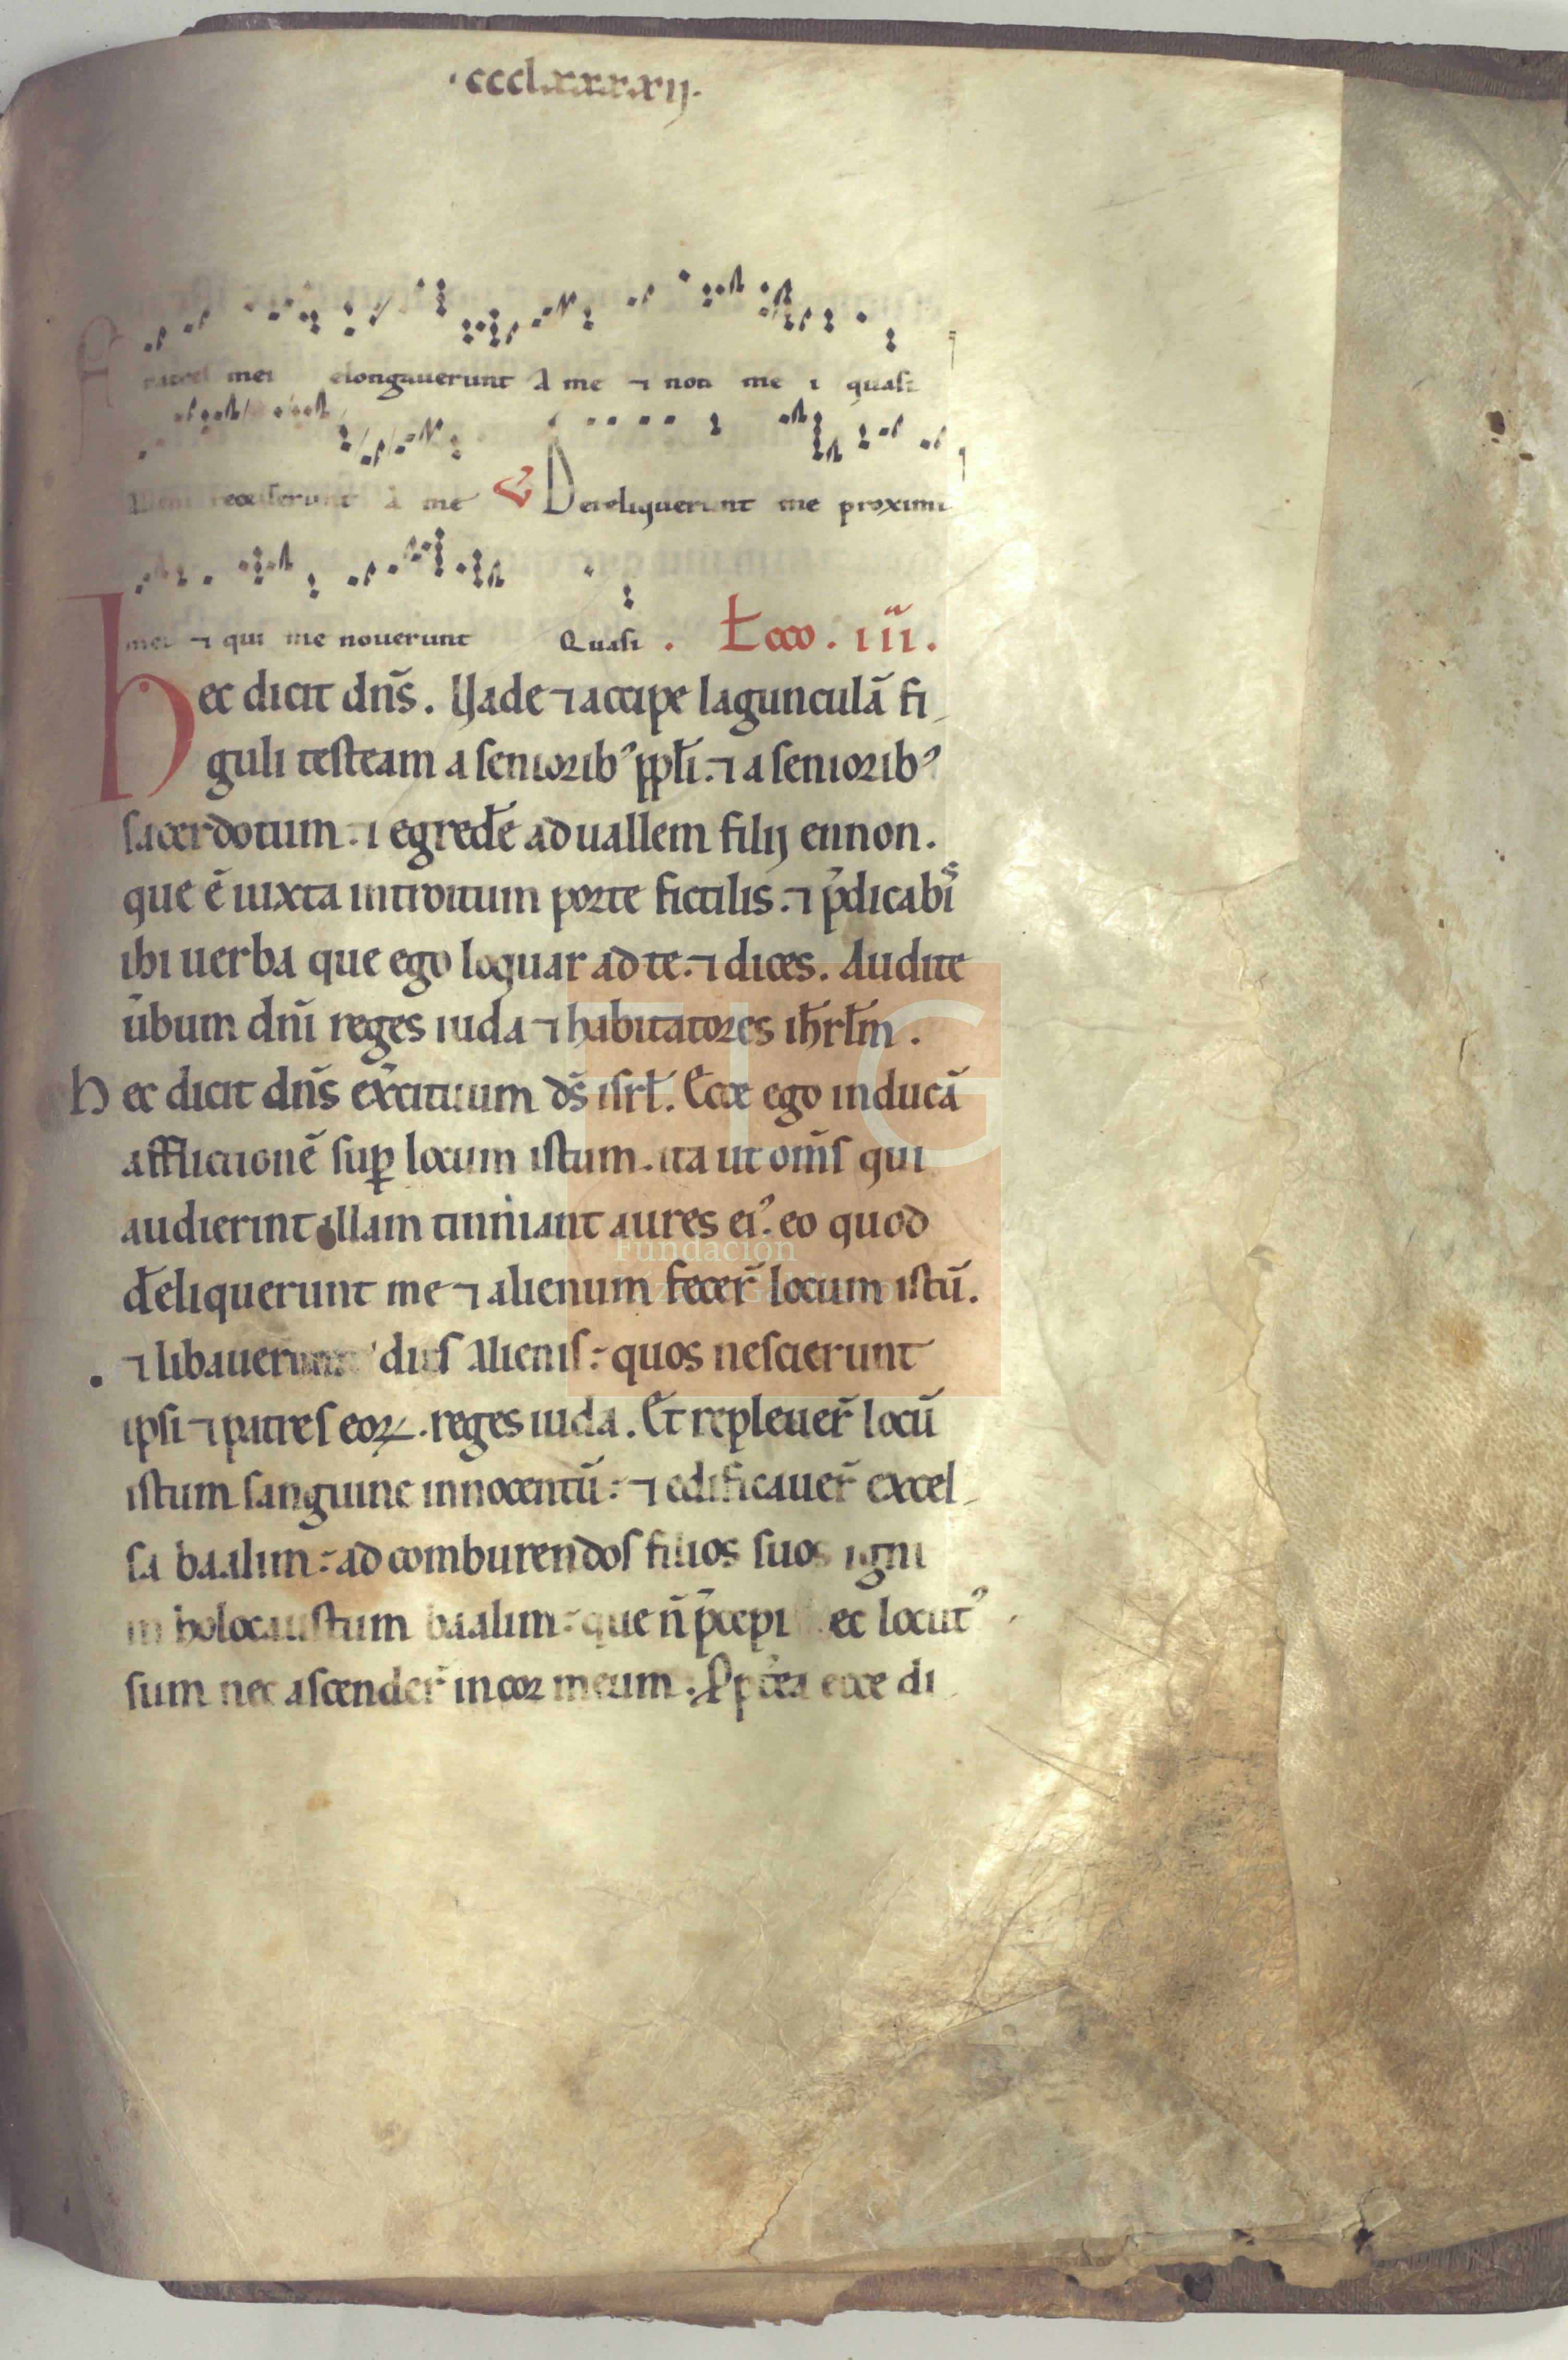 ·ccclxxxxij·
Fratres mei elongauerunt a me ⁊ non me ı quasi
alieni recesserunt a me ℣ Dereliquerunt me proximi
mei ⁊ qui me nouerunt Quasi . Łcco . iii .
hec dicit dn̄s . Uade ⁊ accipe lagunculā fi
guli testeam a seniorib’ ppłi . ⁊ a seniorib’
sacerdotum . ı egredē ad uallem filij ennon .
que ē iuxta introitum porte fictilis . ⁊ p̄dicabis
ibi uerba que ego loquar ad te . ⁊ dices . Audite
ūbum dn̄i reges iuda ⁊ habitatores ihrłm .
hec dicit dn̄s ex̄cituum ds̄ isrł . Ecce ego inducā
afflictionē suꝑ locum istum . ita ut om̄s qui
audierint illam tinniant aures ei’ . eo quod
dēliquerunt me ⁊ alienum fecer̄ locum istū .
⁊ libauerunt diis alienis : quos nescierunt
ipsi ⁊ patres eoꝝ . reges iuda . Et repleuer̄ locū
istum sanguine innocentū : ⁊ edificauer̄ excel
sa baalim : ad comburendos filios suos igni
in holocaustum baalim : que n̄ p̄cepi ec locut’
sum nec ascender̄ in cor meum : Ꝓpt̄ea ecce di
FIG
Fundación